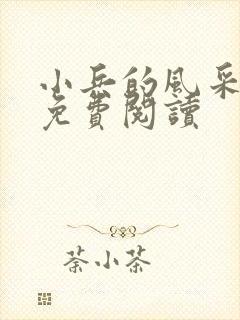 小兵的風采
免費閱讀
荼小茶